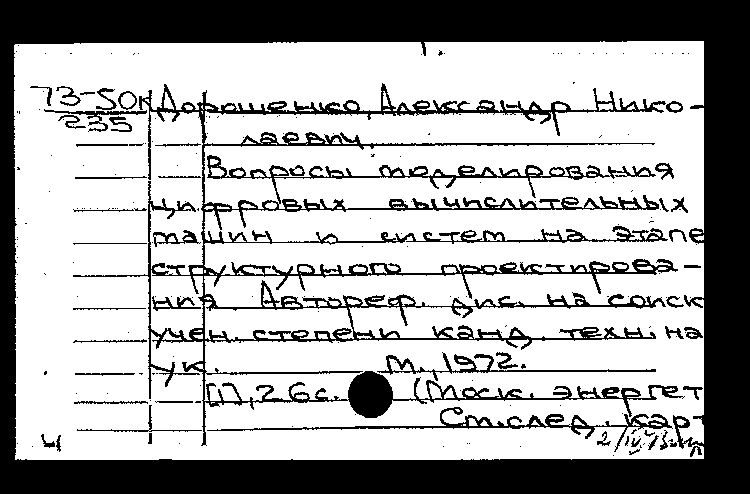 1.
73-50к Дорошенко, Александр Нико-
235
лаевич.
Вопросы моделирования
цифровых вычислительных
машин и систем на этапе
структурного проектирова-
ния. Автореф. дис. на соиск
учен. степени канд. техн. на
ук. М., 1972.
[1], 26 с. (Моск. энергет
См. след. карт
4